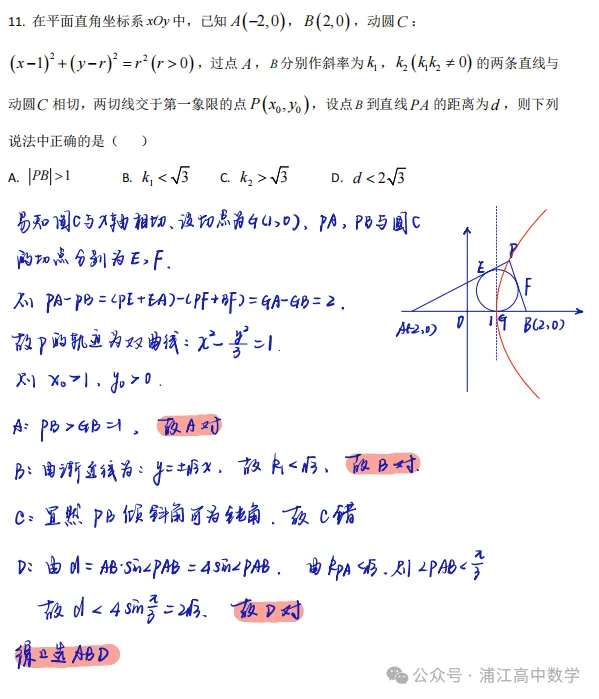 11. 在平面直角坐标系xOy中，已知A(-2,0)，B(2,0)，动圆C：
(x-1)²+(y-r)²=r²(r>0)，过点A，B分别作斜率为k₁，k₂(k₁k₂≠0)的两条直线与
动圆C相切，两切线交于第一象限的点P(x₀,y₀)，设点B到直线PA的距离为d，则下列
说法中正确的是（ ）
A. |PB|>1 B. k₁<√3 C. k₂>√3 D. d<2√3
易知圆C与x轴相切、设切点为G(1,0)、PA，PB与圆C
的切点分别为E，F.
则 PA-PB=(PE+EA)-(PF+BF)=GA-GB=2.
故P的轨迹为双曲线：x²-y²/3=1.
则 x₀>1，y₀>0.
A: PB>GB=1，故A对
B: 由渐近线为：y=±√3x，故k₁<√3，故B对.
C: 显然PB倾斜角可为钝角．故C错
D: 由d=AB·sin∠PAB=4sin∠PAB. 由k_PA<√3.则∠PAB<π/3
故d<4sin π/3=2√3. 故D对
综上选ABD
P
E
F
A(-2,0) O 1 G B(2,0)
公众号·浦江高中数学